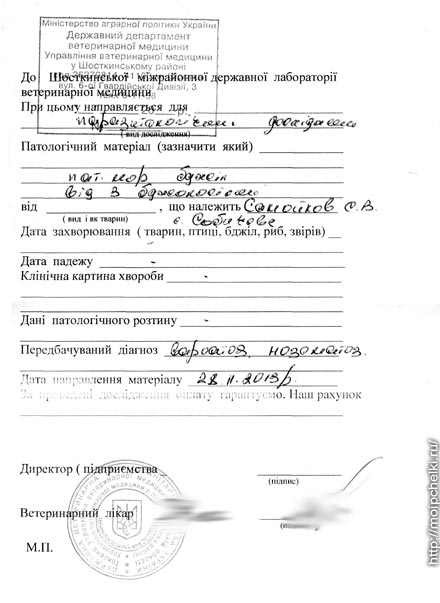 Міністерство аграрної політики України
Державний департамент
ветеринарної медицини
Управління ветеринарної медицини
у Шосткинському районі
вул. 6-ої Гвардійської Дивізії, 3
До Шосткинської міжрайонної державної лабораторії
ветеринарної медицини
При цьому направляється для
( вид дослідження)
Патологічний матеріал (зазначити який)
пат. мор бджіл
від 3 бджолосімей
від , що належить Самойлов О.В.
( вид і вк тварин)
Дата захворювання ( тварин, птиці, бджіл, риб, звірів)
Дата падежу -
Клінічна картина хвороби -
Дані патологічного розтину -
Передбачуваний діагноз вароатоз, нозематоз.
Дата направлення матеріалу 28.11.2013р.
За проведені дослідження оплату гарантуємо. Наш рахунок
Директор ( підприємства
(підпис)
Ветеринарний лікар
М.П.
http://moipchelki.ru/